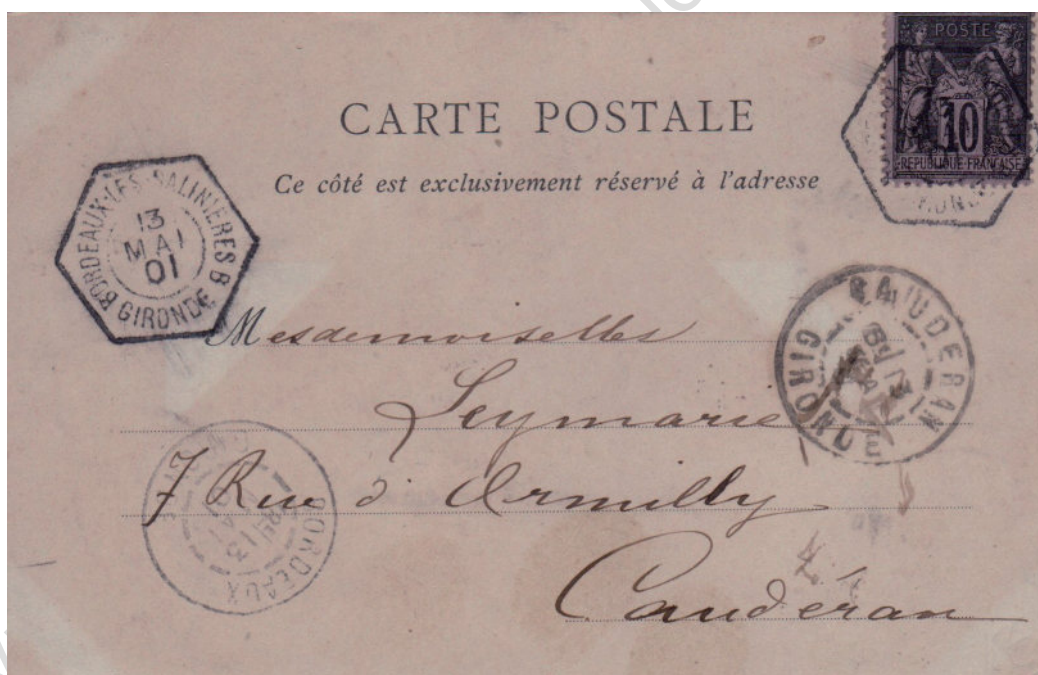 POSTE
10
REPUBLIQUE FRANÇAISE
CARTE POSTALE
Ce côté est exclusivement réservé à l'adresse
BORDEAUX-LES-SALINIERES B
13
MAI
01
GIRONDE
CAUDERAN
GIRONDE
Mesdemoiselles
Leymarie
7 Rue d'Armilly
Caudéran
BORDEAUX
13